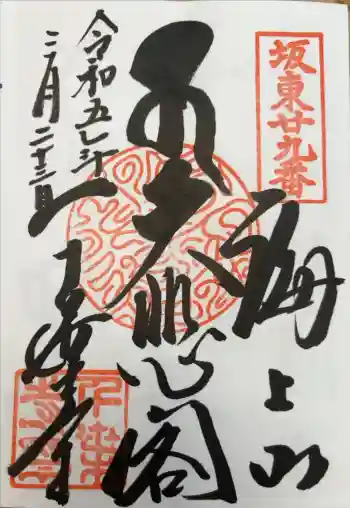 坂東廿九番
海上山
大悲閣
千葉寺
令和五年
三月二十三日